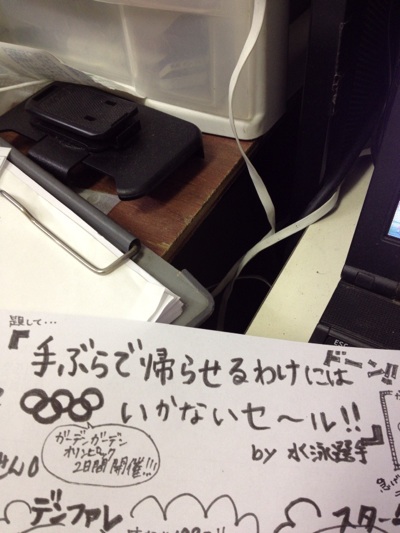 題して・・・
『手ぶらで帰らせるわけには
いかないセ〜ル!!』
ドーン!!
by 水泳選手
ガーデンガーデン
オリンピック
2日間開催!!!
せんの
デンファレ
スター
ESC